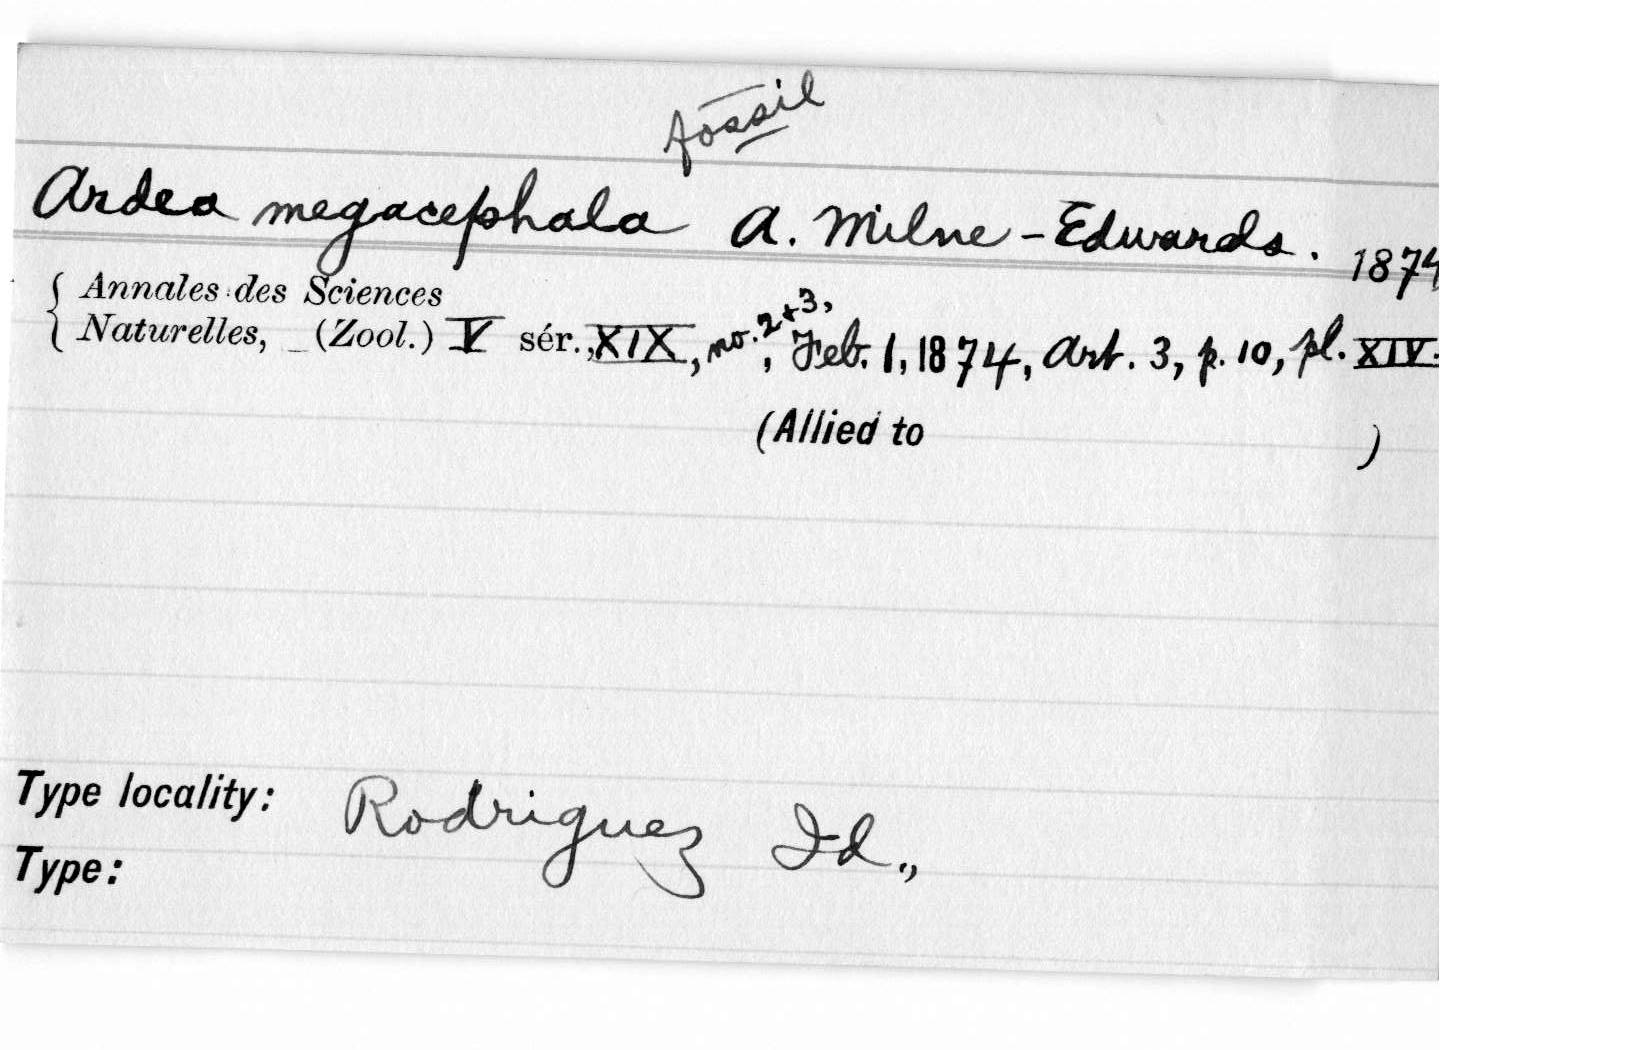 fossil
Ardea megacephala A. Milne-Edwards. 1874
{ Annales des Sciences
Naturelles, (Zool.) V sér., XIX, no. 2+3, Feb. 1, 1874, Art. 3, p. 10, pl. XIV.
(Allied to )
Type locality: Rodriguez Id.,
Type: